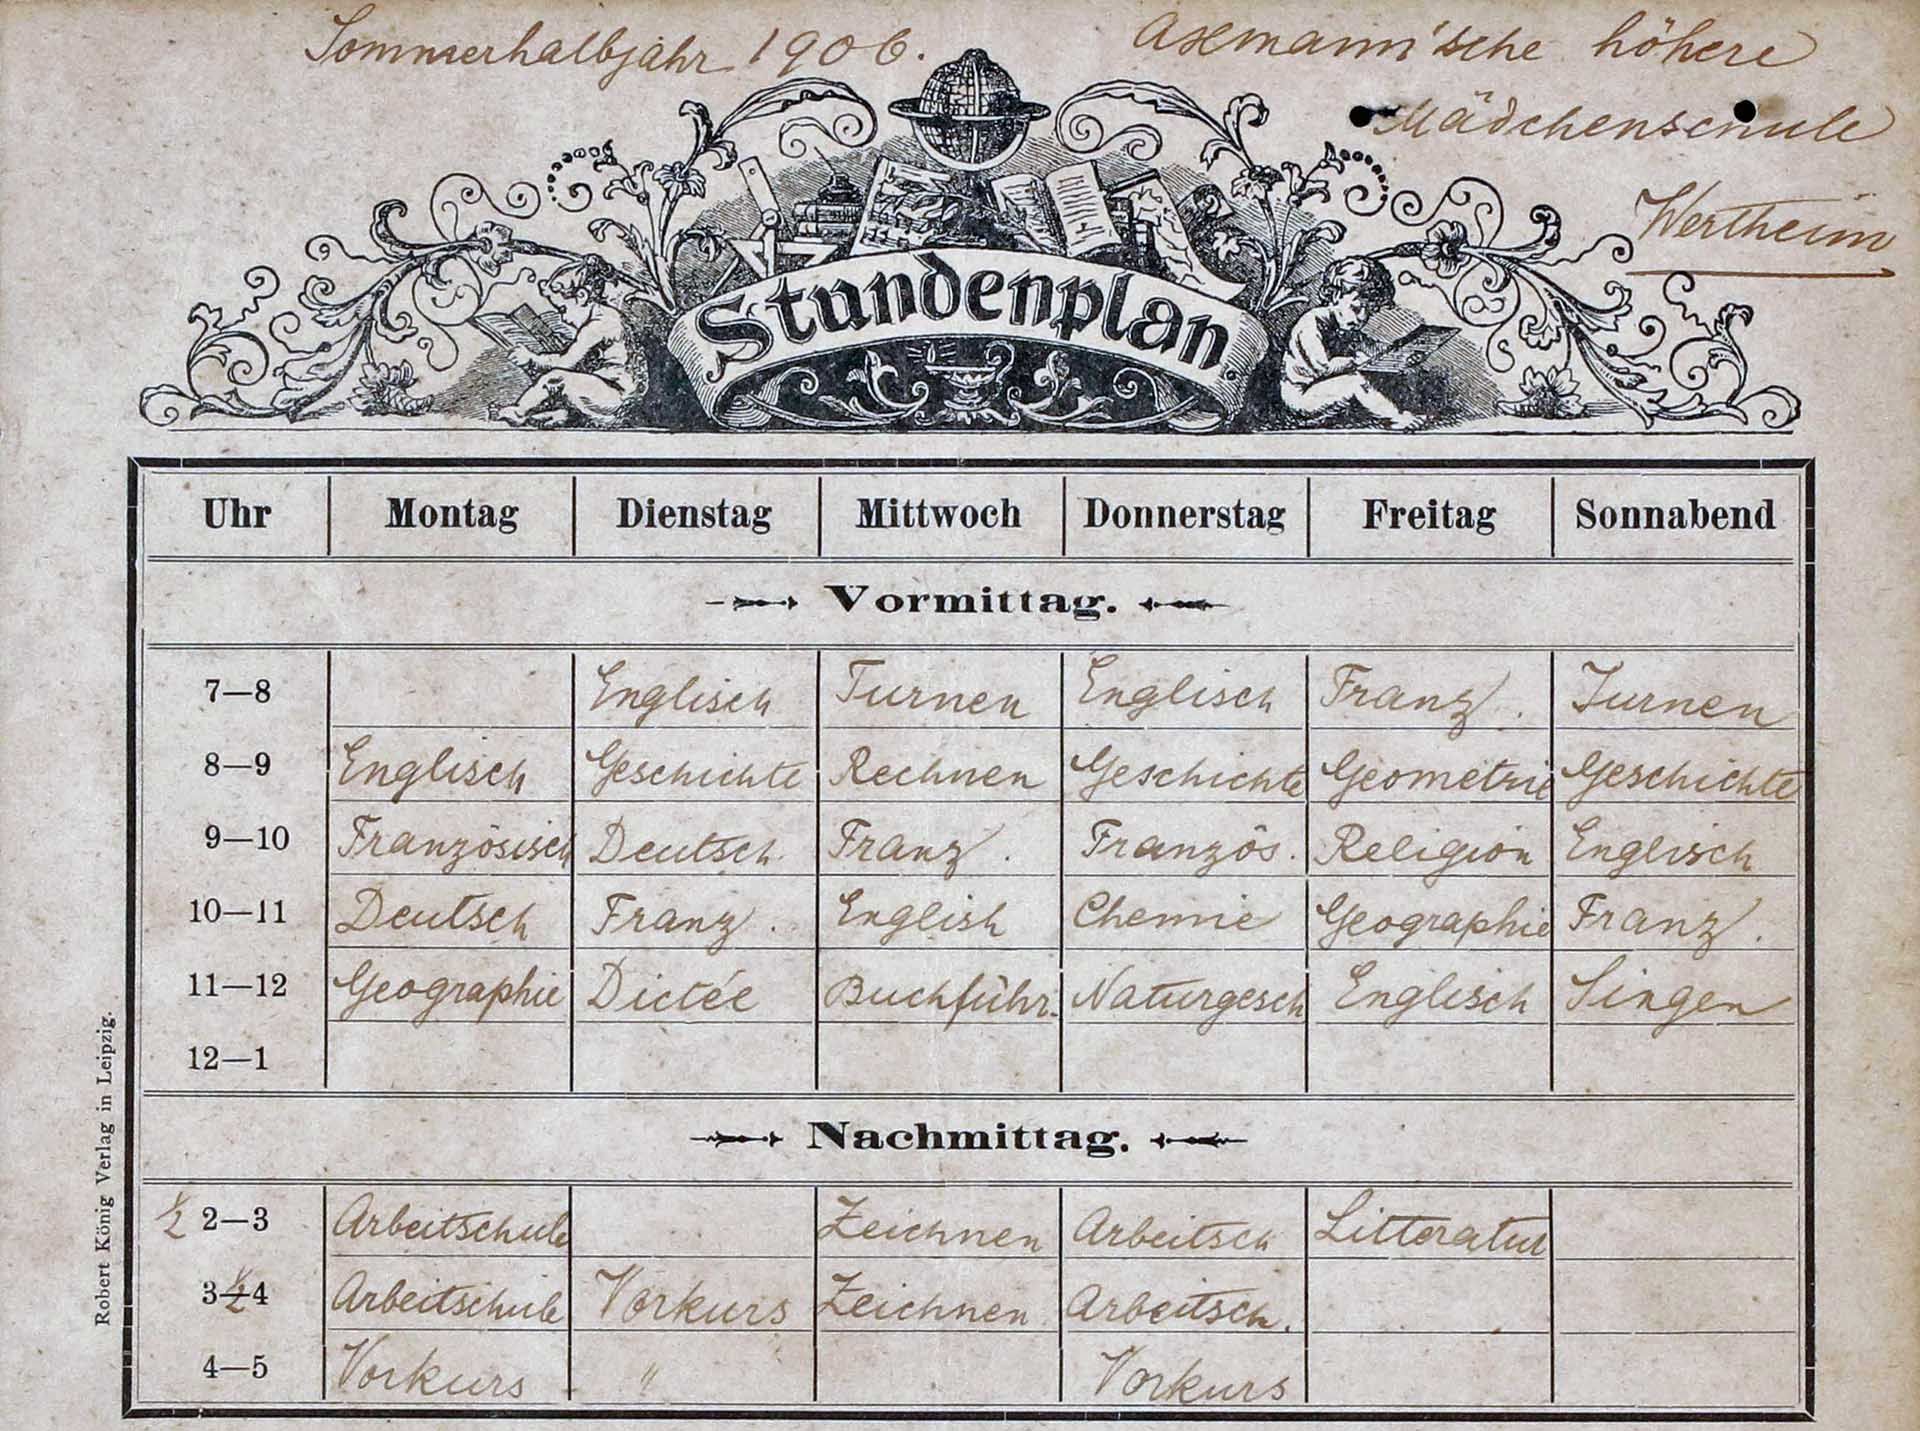 Sommerhalbjahr 1906.
Axmann'sche höhere
Mädchenschule
Wertheim
Stundenplan.
Uhr Montag Dienstag Mittwoch Donnerstag Freitag Sonnabend
Vormittag.
7—8 Englisch Turnen Englisch Franz. Turnen
8—9 Englisch Geschichte Rechnen Geschichte Geometrie Geschichte
9—10 Französisch Deutsch Franz. Französ. Religion Englisch
10—11 Deutsch Franz. English Chemie Geographie Franz.
11—12 Geographie Dictée Buchführ. Naturgesch Englisch Singen
12—1
Nachmittag.
½ 2—3 Arbeitschule Zeichnen Arbeitsch Litteratur
3½4 Arbeitschule Vorkurs Zeichnen Arbeitsch.
4—5 Vorkurs " Vorkurs
Robert König Verlag in Leipzig.